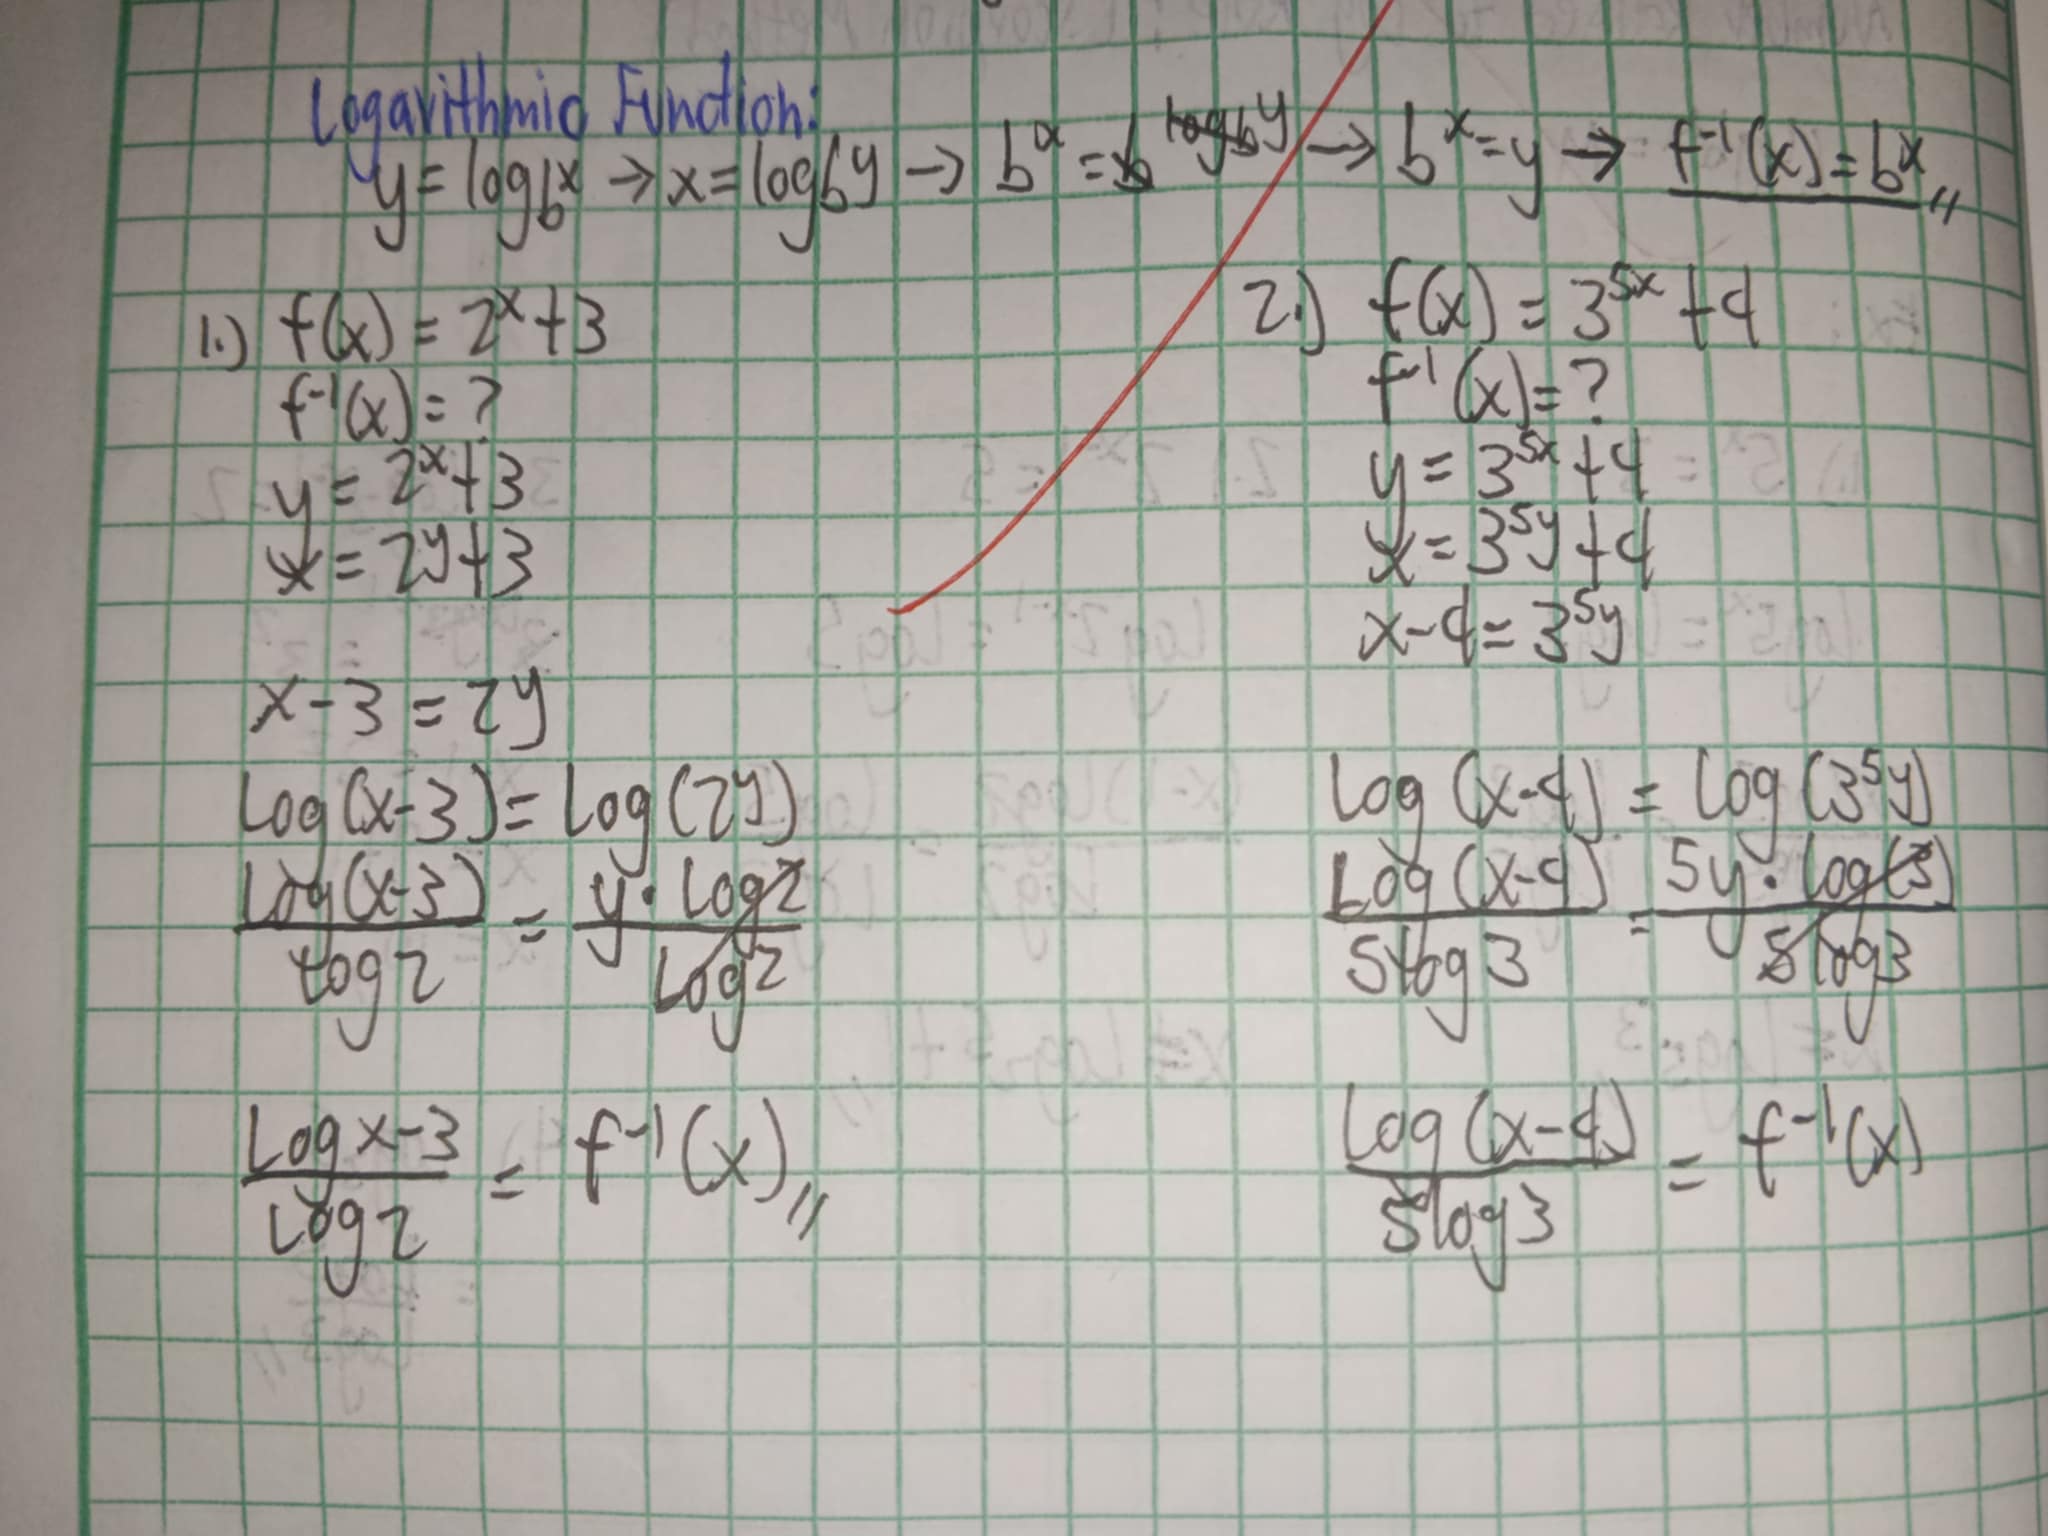 Logarithmic Function:
y = log_b x → x = log_b y → b^x = b^(log_b y) → b^x = y → f^-1(x) = b^x //
1.) f(x) = 2^x + 3
f^-1(x) = ?
y = 2^x + 3
x = 2^y + 3
x - 3 = 2^y
Log(x-3) = Log(2^y)
Log(x-3) / Log 2 = y · Log 2 / Log 2
Log x-3 / Log 2 = f^-1(x) //
2.) f(x) = 3^(5x) + 4
f^-1(x) = ?
y = 3^(5x) + 4
x = 3^(5y) + 4
x - 4 = 3^(5y)
Log (x-4) = Log (3^(5y))
Log (x-4) / 5 log 3 = 5y · Log(3) / 5 log 3
Log (x-4) / 5 log 3 = f^-1(x)